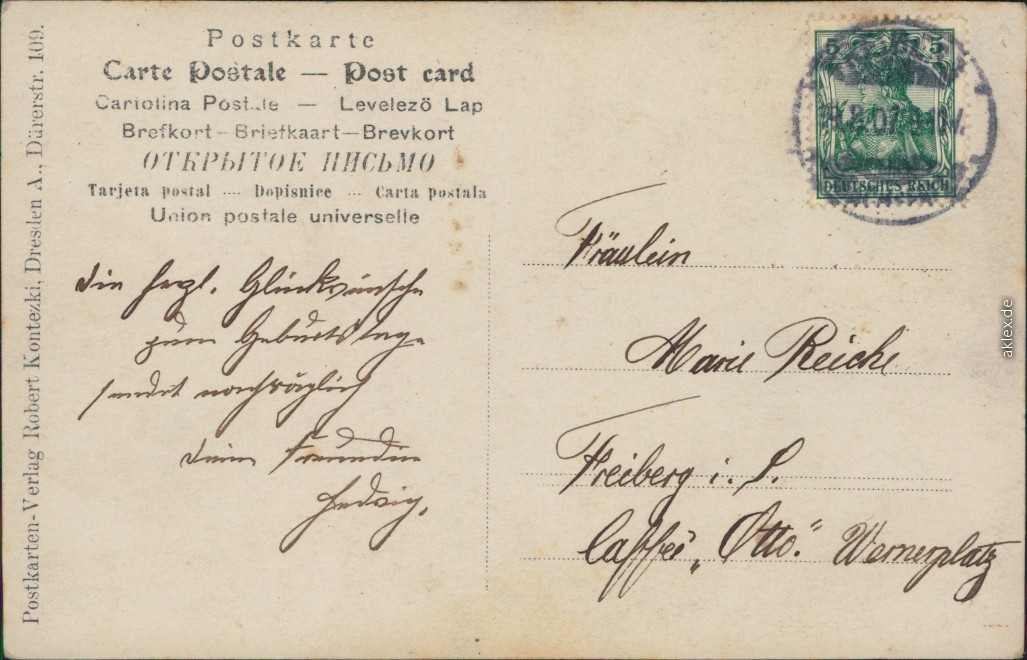 Postkarte
Carte Postale — Post card
Cartolina Postale — Levelezö Lap
Brefkort – Briefkaart — Brevkort
ОТКРЫТОЕ ПИСЬМО
Tarjeta postal — Dopisnice — Carta postala
Union postale universelle
Die herzl. Glückwünsche
zum Geburtstage
sendet nachträglich
deine Freundin
Hedwig.
5 5
DEUTSCHES REICH
Fräulein
Marie Reiche
Freiberg i. S.
Caffee „Otto." Wernerplatz
Postkarten-Verlag Robert Kontezki, Dresden A., Dürerstr. 109.
aklex.de